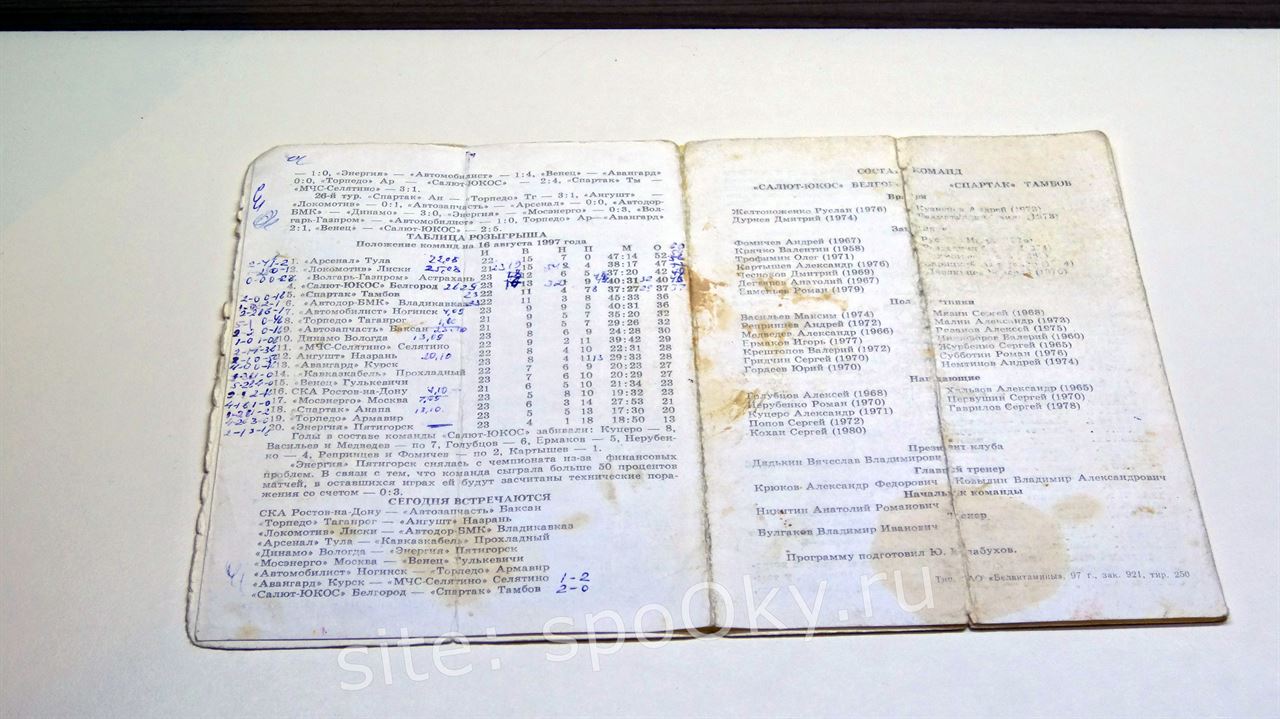 — 1:0, «Энергия» — «Автомобилист» — 1:4, «Венец» — «Авангард»
0:0, «Торпедо» Ар — «Салют-ЮКОС» — 2:4, «Спартак» Тм —
«МЧС-Селятино» — 3:1.
26-й тур. «Спартак» Ан — «Торпедо» Тг — 3:1, «Ангушт» —
«Локомотив» — 0:1, «Автозапчасть» — «Арсенал» — 0:0, «Автодор-
БМК» — «Динамо» — 3:0, «Энергия» — «Мосэнерго» — 0:3, «Вол-
гарь-Газпром» — «Автомобилист» — 1:0, Торпедо Ар—«Авангард»
2:1, «Венец» — «Салют-ЮКОС» — 2:5.
ТАБЛИЦА РОЗЫГРЫША
Положение команд на 16 августа 1997 года
И В Н П М О
1. «Арсенал» Тула 22 15 7 0 47:14 52
2. «Локомотив» Лиски 25,08 15 38:17
«Волгарь-Газпром» Астрахань 23 12 6 5 37:20 42
4. «Салют-ЮКОС» Белгород 23 13 1 9 40:31 40
5. «Спартак» Тамбов 22 11 4 37:27 37
6. «Автодор-БМК» Владикавказ 11 3 8 45:33 36
7. «Автомобилист» Ногинск 23 9 9 5 40:31 36
8. «Торпедо» Таганрог 23 9 5 7 35:20 32
9. «Автозапчасть» Баксан 21 9 5 7 29:26 32
10. Динамо Вологда 13,09 23 8 6 9 24:28 30
11. «МЧС-Селятино» Селятино 22 9 2 11 39:42 29
12. Ангушт» Назрань 20,10 22 8 4 10 22:31 28
13. «Авангард» Курск 22 8 4 29:33 28
14. «Кавказкабель» Прохладный 22 7 6 9 20:23 27
15. «Венец» Гулькевичи 23 7 6 10 20:29 27
16. СКА Ростов-на-Дону 21 6 5 10 21:34 23
17. «Мосэнерго» Москва 23 5 8 10 19:32 23
18. «Спартак» Анапа 13,10. 23 6 3 14 27:53 21
19. «Торпедо» Армавир 23 5 5 13 17:30 20
20. «Энергия» Пятигорск — 23 4 1 18 18:50 13
Голы в составе команды «Салют-ЮКОС» забивали: Куцеро — 8,
Васильев и Медведев — по 7, Голубцов — 6, Ермаков — 5, Нерубен-
ко — 4, Репринцев и Фомичев — по 2, Картышев — 1.
«Энергия» Пятигорск снялась с чемпионата из-за финансовых
проблем. В связи с тем, что команда сыграла больше 50 процентов
матчей, в оставшихся играх ей будут засчитаны технические пора-
жения со счетом — 0:3.
СЕГОДНЯ ВСТРЕЧАЮТСЯ
СКА Ростов-на-Дону — «Автозапчасть» Баксан
«Торпедо» Таганрог — «Ангушт» Назрань
«Локомотив» Лиски — «Автодор-БМК» Владикавказ
«Арсенал» Тула — «Кавказкабель» Прохладный
«Динамо» Вологда — «Энергия» Пятигорск
«Мосэнерго» Москва — «Венец» Гулькевичи
«Автомобилист» Ногинск — «Торпедо» Армавир
«Авангард» Курск — «МЧС-Селятино» Селятино 1-2
«Салют-ЮКОС» Белгород — «Спартак» Тамбов 2-0
КОМАНД
«САЛЮТ-ЮКОС» «СПАРТАК» ТАМБОВ
Желтоноженко Руслан (1976)
Дурнев Дмитрий (1974)
Фомичев Андрей (1967)
Крячко Валентин (1958)
Трофымин Олег (1971)
Картышев Александр (1976)
Чесноков Дмитрий (1969)
Дегтярев Анатолий (1967)
Евментьев Роман (1979)
Васильев Максим (1974)
Репринцев Андрей (1972)
Медведев Александр (1966)
Ермаков Игорь (1977)
Крештопов Валерий (1972)
Гридчин Сергей (1970)
Гордеев Юрий (1970)
Мязин Сергей (1968)
Малин Александр (1973)
Алексей (1975)
Валерий (1960)
Журбенко Сергей (1965)
Субботин Роман (1976)
Немтинов Андрей (1974)
Нападающие
Голубцов Алексей (1968)
Нерубенко Роман (1970)
Куцеро Александр (1971)
Попов Сергей (1972)
Кохан Сергей (1980)
Хальзов Александр (1965)
Первушин Сергей (1970)
Гаврилов Сергей (1978)
Президент клуба
Дядькин Вячеслав Владимирович
Главный тренер
Крюков Александр Федорович Ковылин Владимир Александрович
Начальник команды
Никитин Анатолий Романович
Тренер
Булгаков Владимир Иванович
Программу подготовил Ю.
Тип. АО «Белвитамины», 97 г., зак. 921, тир. 250
site: spoOky.ru